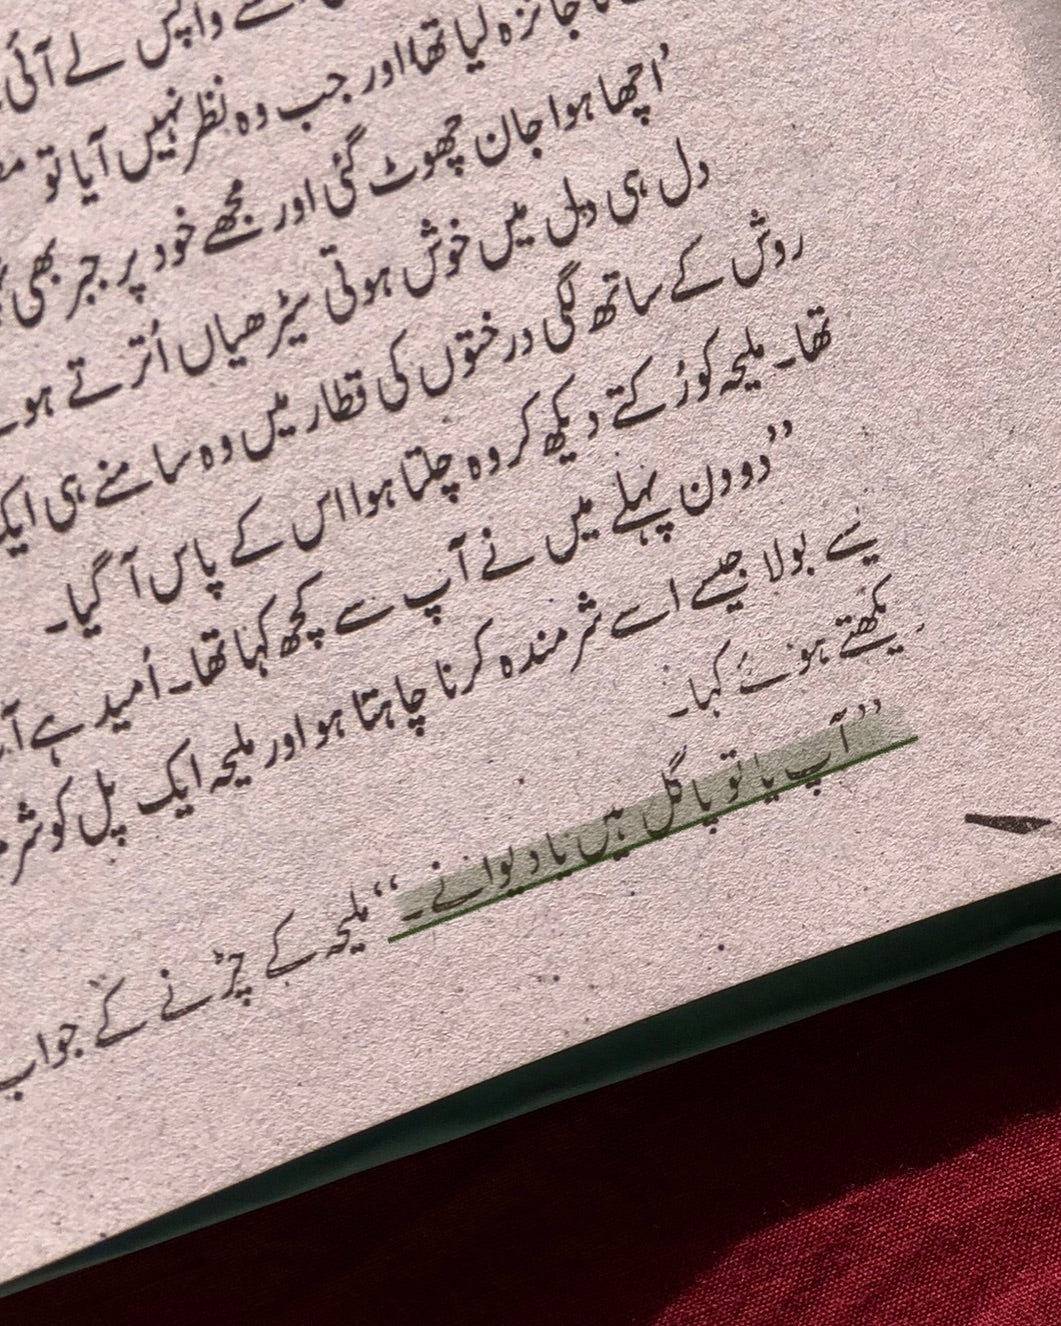 واپس لے آئی
جائزہ لیا تھا اور جب وہ نظر نہیں آیا تو
'اچھا ہوا جان چھوٹ گئی اور مجھے خود پر جبر بھی
دل ہی دل میں خوش ہوتی سیڑھیاں اُترتے
روش کے ساتھ لگی درختوں کی قطار میں وہ سامنے ہی ایک
تھا۔ ملیحہ کو رُکتے دیکھ کر وہ چلتا ہوا اس کے پاس آ گیا۔
”دو دن پہلے میں نے آپ سے کچھ کہا تھا۔ اُمید ہے
یسے بولا جیسے اسے شرمندہ کرنا چاہتا ہو اور ملیحہ ایک پل کو
یکھتے ہوئے کہا۔
”آپ یا تو پاگل ہیں یا دیوانے۔“ ملیحہ کے چڑنے کے جواب